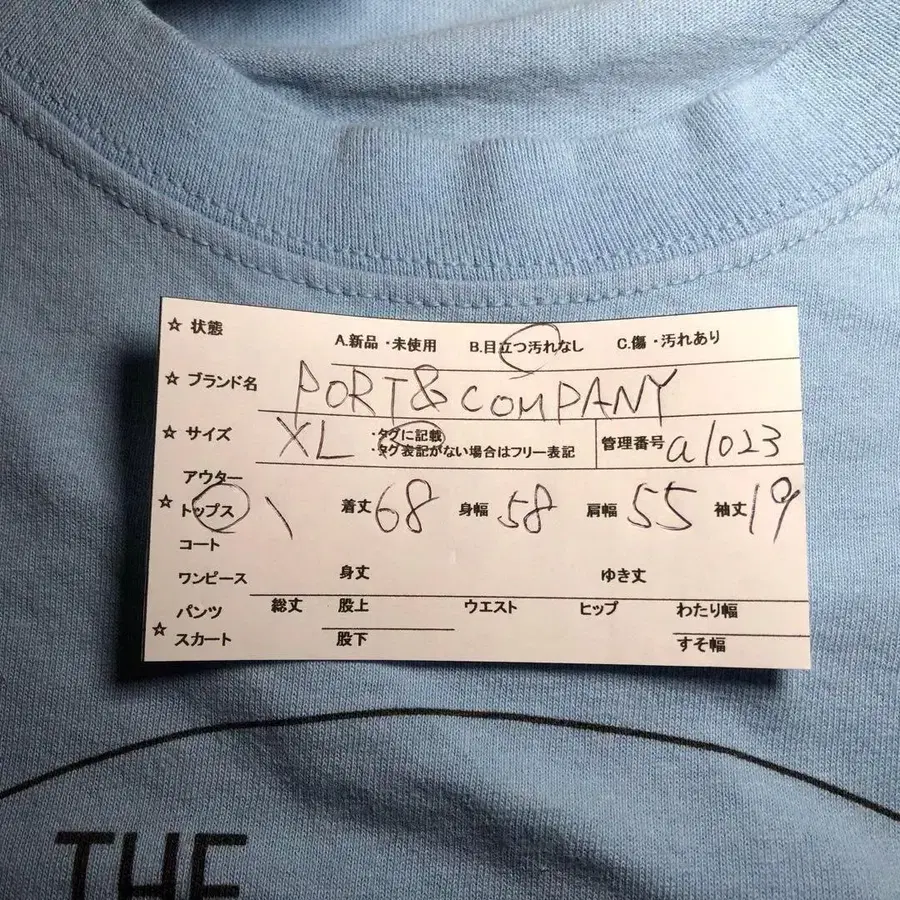 ☆ 状態 A.新品・未使用 B.目立つ汚れなし C.傷・汚れあり
☆ ブランド名 PORT&COMPANY
☆ サイズ XL ・タグに記載 管理番号 a1023
・タグ表記がない場合はフリー表記
アウター
☆ トップス \ 着丈 68 身幅 58 肩幅 55 袖丈 19
コート
ワンピース 身丈 ゆき丈
パンツ 総丈 股上 ウエスト ヒップ わたり幅
☆ スカート 股下 すそ幅
THE